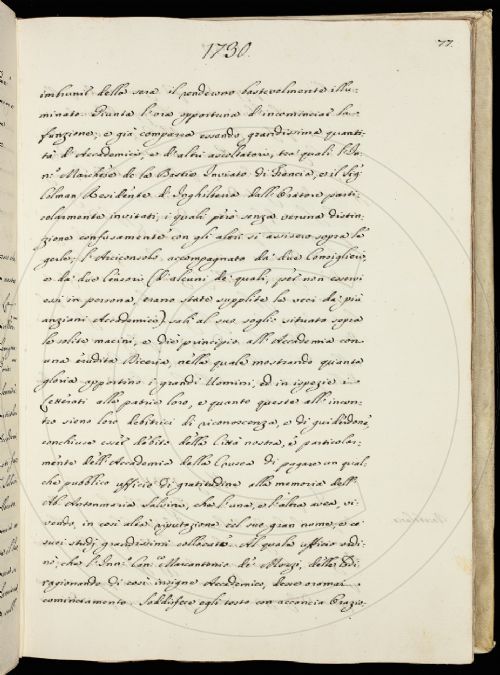 1730.
77.
imbrunir della sera il rendevono bastevolmente illu-
minato. Giunta l'ora opportuna d'incominciar la
funzione, e già comparsa essendo grandissima quanti-
tà d'Accademici, e d'altri ascoltatori, tra' quali l'In-
n.º Marchese de la Bastie Inviato di Francia, e il Sig.
Colman Residente d'Inghilterra dall'Oratore parti-
colarmente invitati, i quali però senza veruna distin-
zione confusamente con gli altri si assisero sopra le
gerle; l'Arciconsolo accompagnato da' due Consiglieri,
e da' due Censori (d'alcuni de' quali, per non esservi
essi in persona, erano state supplite le veci da' più
anziani Accademici) salì al suo soglio situato sopra
le solite macini, e diè principio all'Accademia con
una erudita Diceria, nella quale mostrando quanta
gloria apportino i grandi Uomini, ed in ispezie i
letterati alle patrie loro, e quanto queste all'incon-
tro sieno loro debitrici di riconoscenza, e di guiderdone,
conchiuse esser debito della Città nostra, e particolar-
mente dell'Accademia della Crusca di pagare un qual-
che pubblico uffizio di gratitudine alla memoria dell'
Ab. Antonmaria Salvini, che l'una, e l'altra avea, vi-
vendo, in così alta riputazione col suo gran nome, e co'
suoi studj grandissimi sollevate. Al quale uffizio ordi-
nò, che l'Inn.º Can.º Marcantonio de' Mozzi, delle lodi
ragionando di così insigne Accademico, desse oramai
cominciamento. Soddisfece egli tosto con acconcia Orazio-